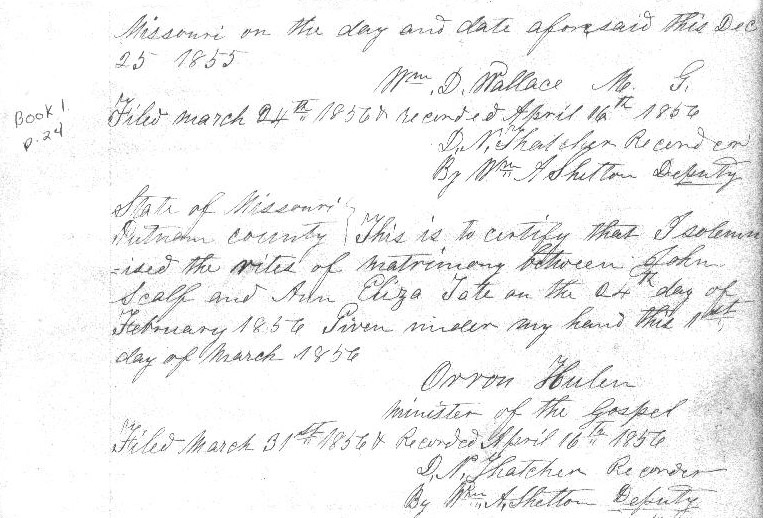 Missouri on the day and date aforesaid this Dec
25 1855
Wm. D. Wallace M. G.
Book 1.
p. 24
Filed march 24th 1856 & recorded April 16th 1856
D. N. Thatcher Recorder
By Wm A Shelton Deputy
State of Missouri
Putnam county } This is to certify that I solemn
=ised the rites of matrimony between John
Scalf and Ann Eliza Tate on the 24th day of
February 1856 Given under my hand this 1st
day of March 1856
Orron Hulen
minister of the Gospel
Filed March 31st 1856 & Recorded April 16th 1856
D. N. Thatcher Recorder
By Wm A. Shelton Deputy